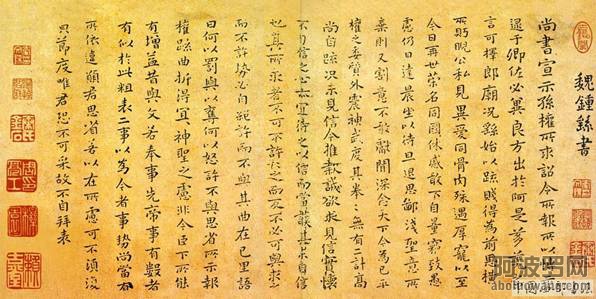 魏鍾繇書
尚書宣示孫權所求詔令所報所以博示
逮于卿佐必冀良方出於阿是芻蕘之
言可擇郎廟況繇始以疏賤得為前恩橫
所眄睨公私見異愛同骨肉殊遇厚寵以至
今日再世榮名同國休慼敢不自量竊致愚
慮仍日達晨坐以待旦退思鄙淺聖意所
棄則又割意不敢獻聞深念天下今為已平
權之委質外震神武度其拳拳無有二計高
尚自疏況未見信今推款誠欲求見信實懷
不自信之心亦宜待之以信而當護其未自信
也其所求者不可不許許之而反不必可與求之
而不許勢必自絕許而不與其曲在己里語
曰何以罰與以奪何以怒許不與思省所示報
權疏曲折得宜宜神聖之慮非今臣下所能
有增益昔與文若奉事先帝事有數者
有似於此粗表二事以為今者事勢尚當有
所依違願君思省若以在所慮可不須復
貌節度唯君恐不可采故不自拜表
阿波罗网